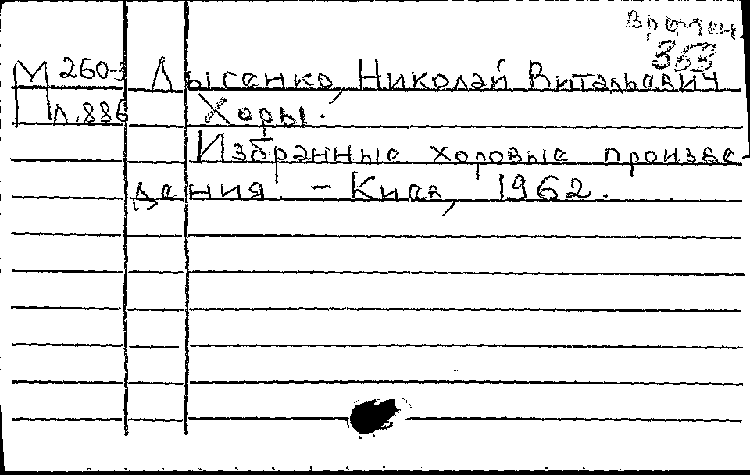 Времен.
353
М 260-3 Лысенко, Николай Витальевич
Л.886 Хоры.
Избранные хоровые произве-
дения. - Киев, 1962.